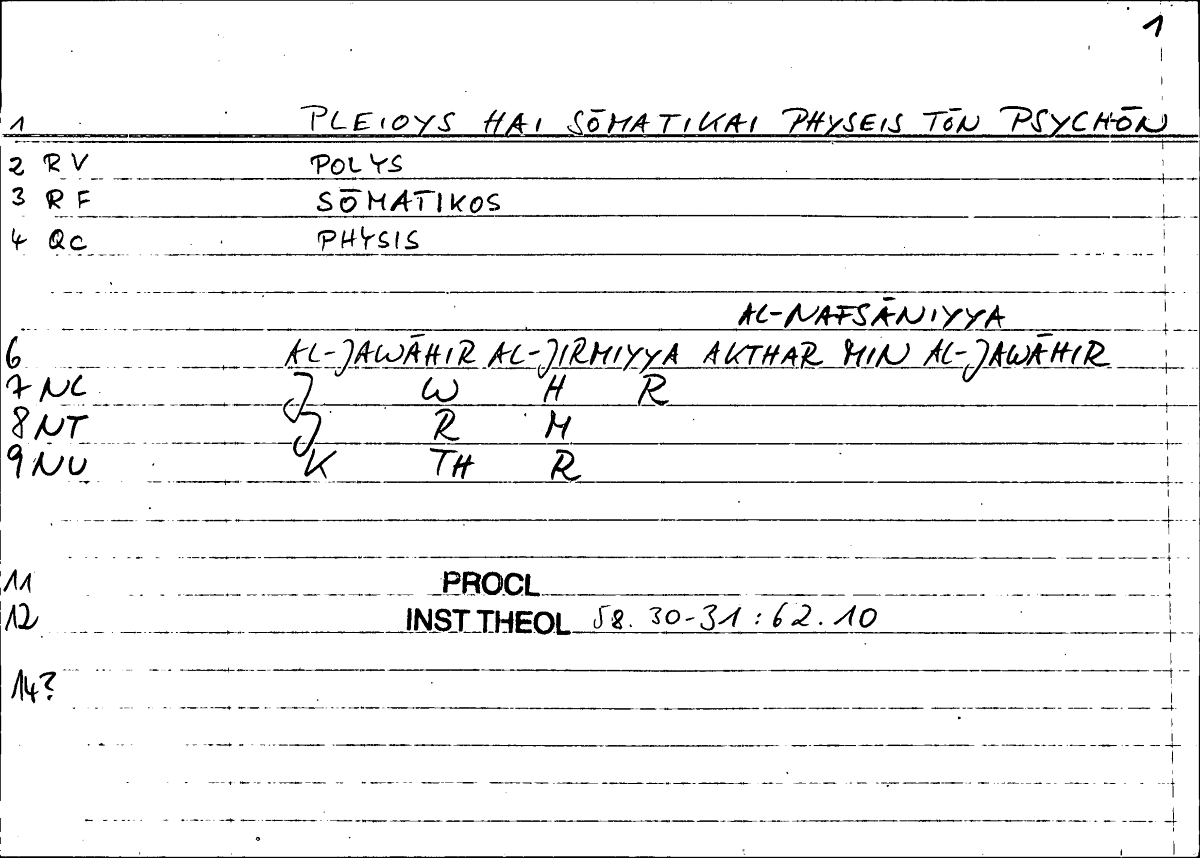 1
1 PLEIOYS HAI SŌMATIKAI PHYSEIS TŌN PSYCHŌN
2 RV POLYS
3 RF SŌMATIKOS
4 QC PHYSIS
AL-NAFSĀNIYYA
6 AL-JAWĀHIR AL-JIRMIYYA AKTHAR MIN AL-JAWĀHIR
7 NL J W H R
8 NT J R M
9 NU K TH R
11 PROCL
12 INST THEOL 58. 30-31 : 62. 10
14?